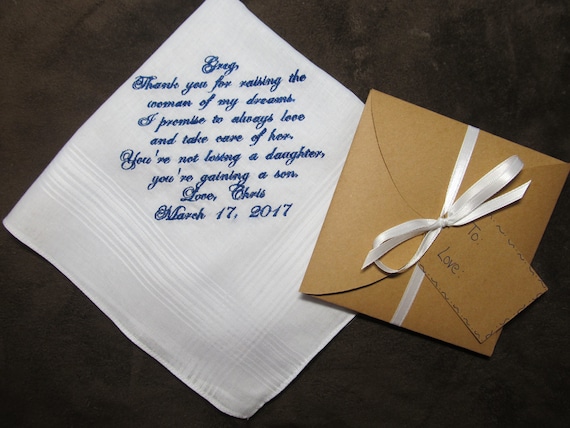 Greg,
Thank you for raising the
woman of my dreams.
I promise to always love
and take care of her.
You're not losing a daughter,
you're gaining a son.
Love, Chris
March 17, 2017
To:
Love: